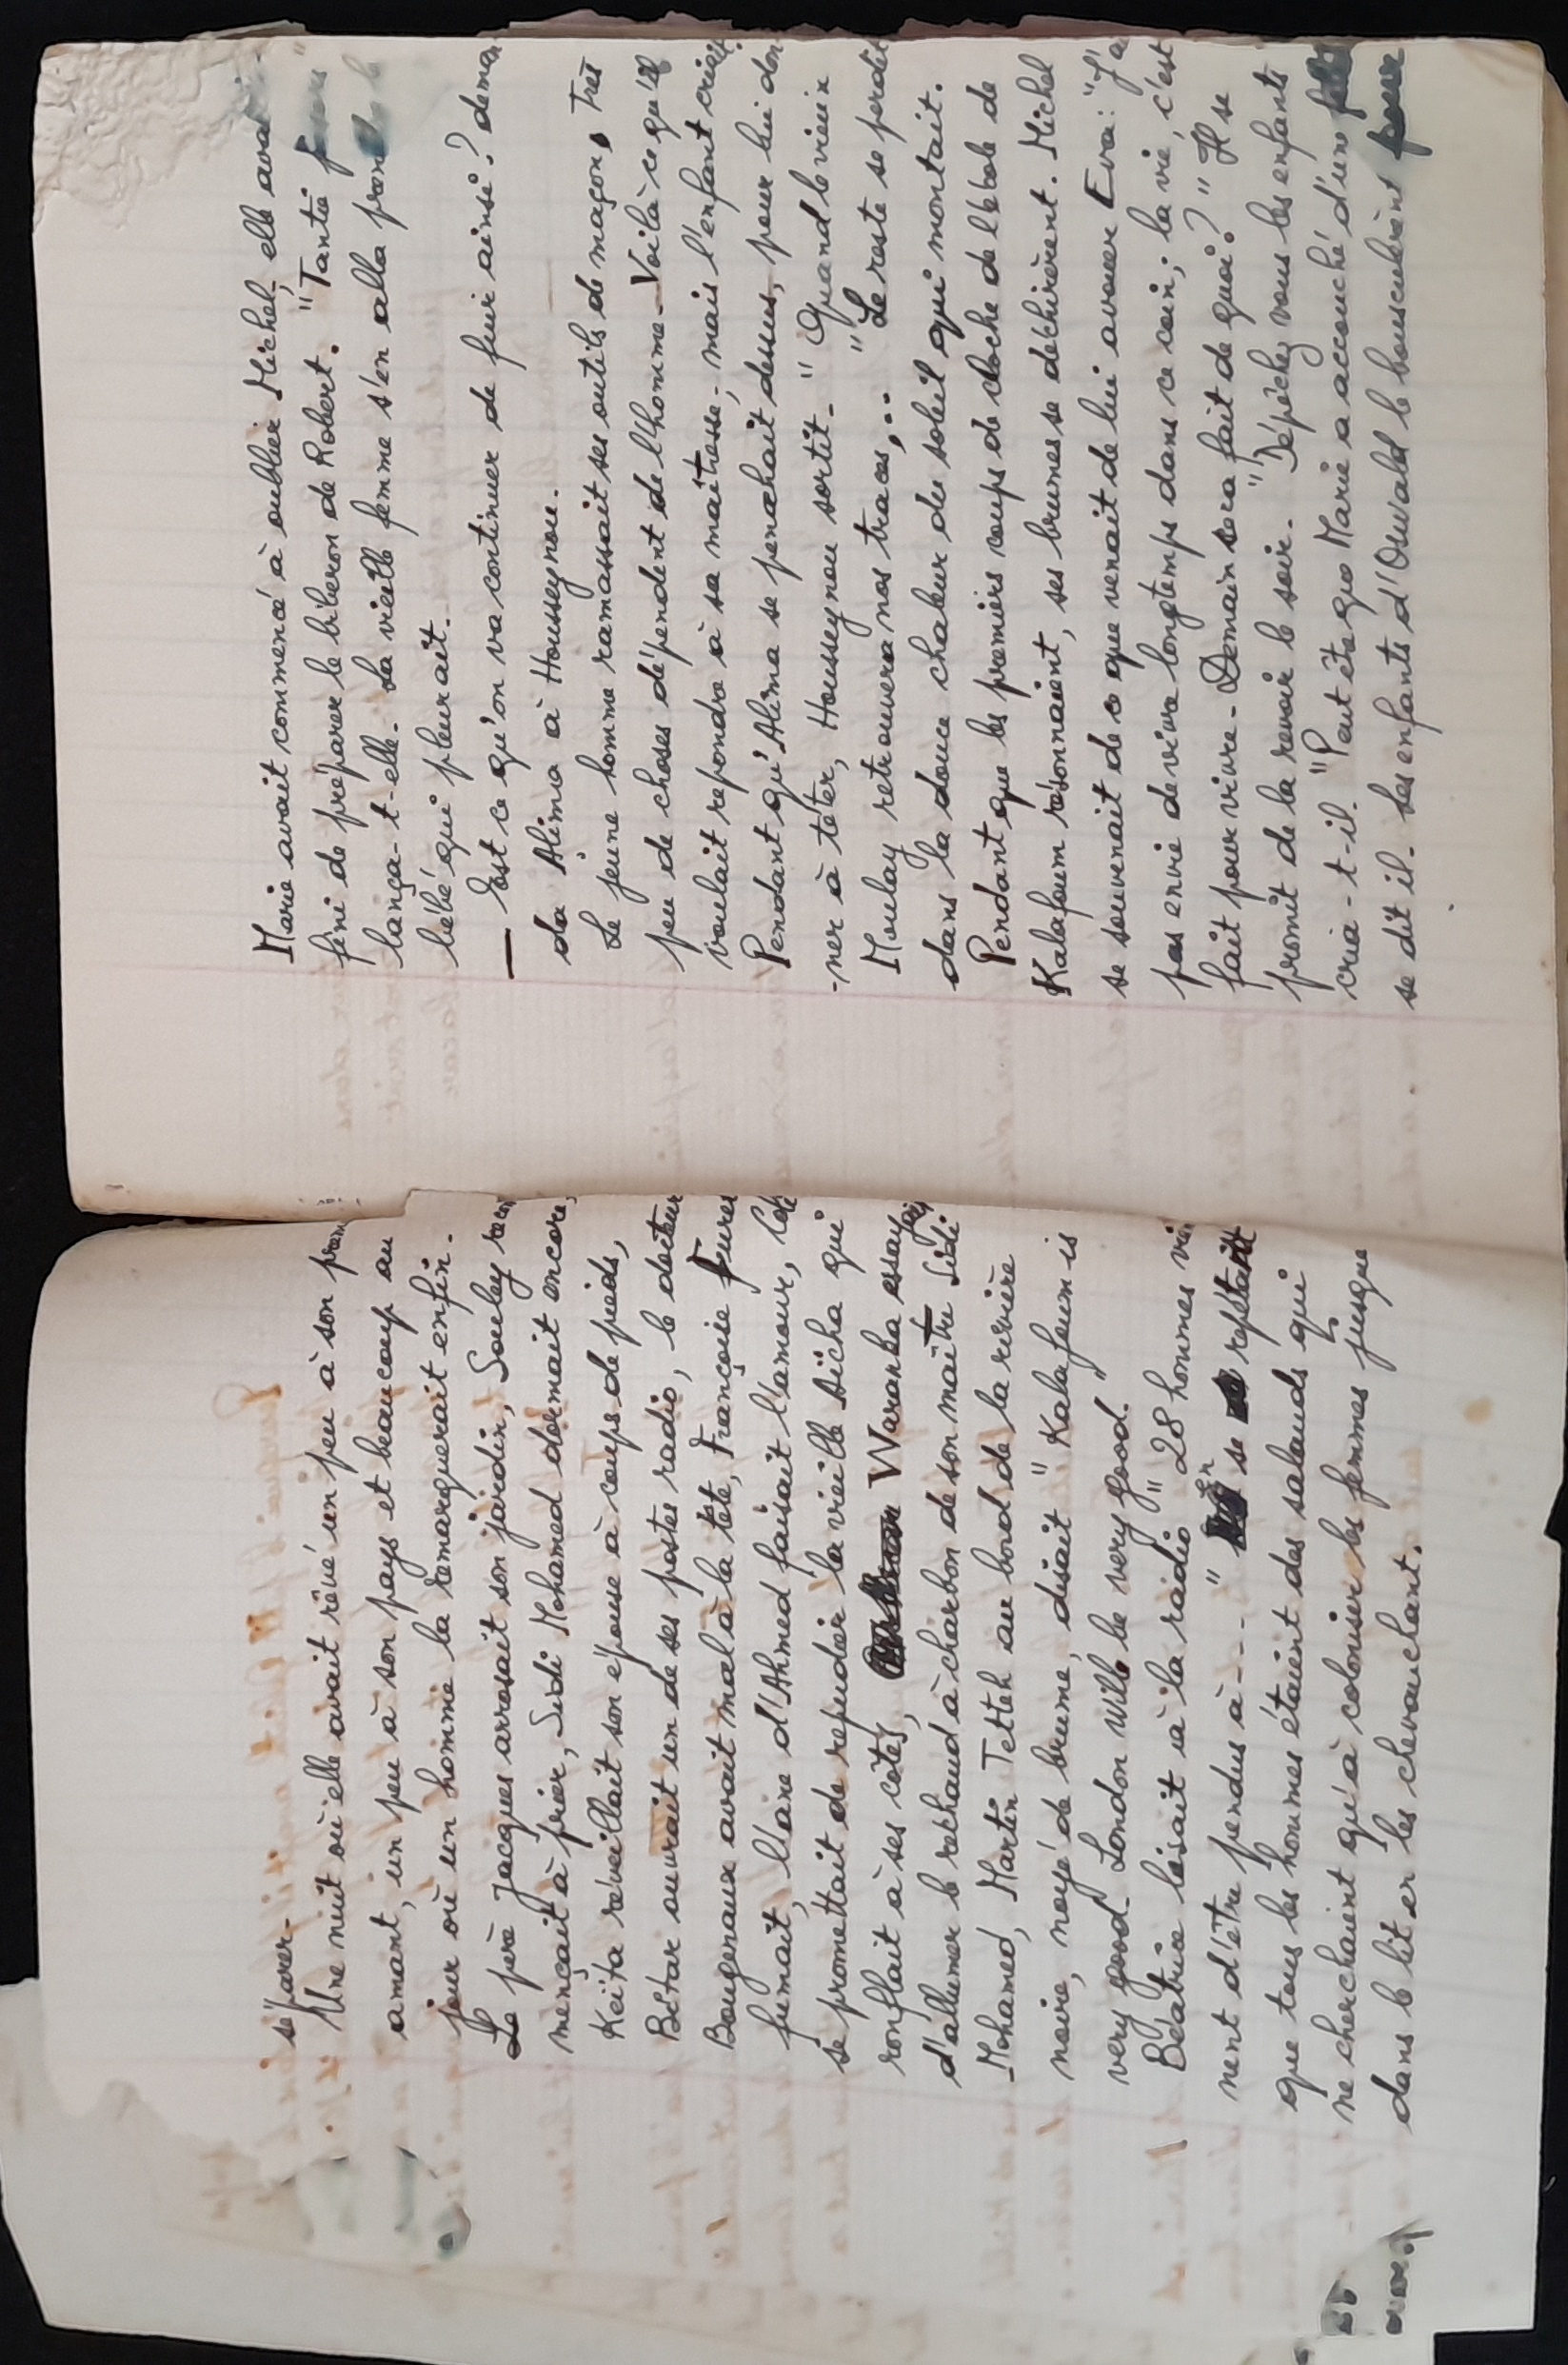 séparer.
Une nuit où elle avait rêvé un peu à son
amant, un peu à son pays et beaucoup au
jour où un homme la remarquerait enfin.
Le père Jacques arrosait son jardin, Souley
mençait à prier, Sidi Mohamed dormait encore,
Keïta réveillait son épouse à coups de pieds,
Bétar ouvrait un de ses postes radio, le docteur
Bougeraux avait mal à la tête, Françoise
fumait, l'âne d'Ahmed faisait l'amour,
se promettait de repudier la vieille Aïcha qui
ronflait à ses côtés, Waranka
d'allumer le réchaud à charbon de son maître Sidi
Mohamed, Martin Tetteh au bord de la rivière
noire, noyé de brume, disait " Kalafoum is
very good. London will be very good. "
Béatrice lisait à la radio " 28 hommes
nent d'être pendus à - - - " En se répétant
que tous les hommes étaient des salauds qui
ne cherchaient qu'à coloniser les femmes jusque
dans le lit en les chevauchant.
Marie avait commencé à oublier Michel, elle
fini de préparer le biberon de Robert. "Tantie
lança-t-elle. La vieille femme s'en alla
bébé qui pleurait.
— Est ce qu'on va continuer de fuir ainsi ? deman
da Alima à Housseynou.
Le jeune homme ramassait ses outils de maçon, Très
peu de choses dépendent de l'homme - Voilà ce qu'il
voulait repondre à sa maîtresse, mais l'enfant criait.
Pendant qu'Alima se penchait dessus, pour lui don
-ner à têter, Housseynou sortit. " Quand le vieux
Moulay retrouvera nos traces,.. " Le reste se perdit
dans la douce chaleur du soleil qui montait.
Pendant que les premiers coups de cloche de l'école de
Kalafoum résonnaient, ses brumes se déchirèrent. Michel
se souvenait de ce que venait de lui avouer Eva: "J'a
pas envie de vivre longtemps dans ce coin ; la vie, c'est
fait pour vivre - Demain sera fait de quoi ? " Il se
promit de la revoir le soir. " Dépêchez vous les enfants
cria-t-il. "Peut être que Marie a accouché d'une
se dit il. Les enfants d'Oswald le bousculèrent pour